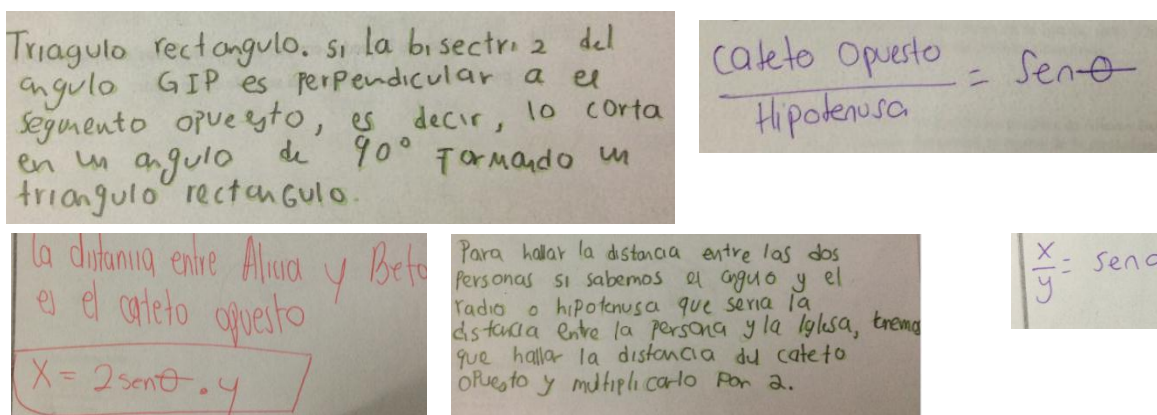 Triagulo rectangulo. si la bisectriz del
angulo GIP es perpendicular a el
segmento opuesto, es decir, lo corta
en un angulo de 90° Formando un
triangulo rectanGulo.
Cateto Opuesto
Hipotenusa
= Senθ
la distancia entre Alicia y Beto
es el cateto opuesto
X = 2senθ . y
Para hallar la distancia entre las dos
Personas si sabemos el anguo y el
radio o hipotenusa que seria la
distancia entre la persona y la Iglesa, tnemo
que hallar la distancia del cateto
opuesto y multiplicarlo por 2.
x
y
= sen